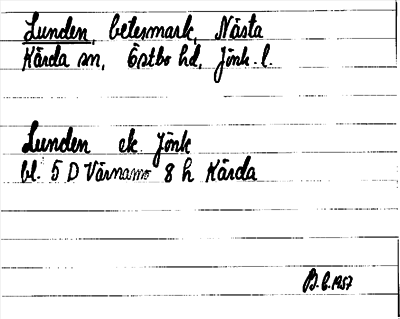 Lunden, betesmark, Nästa
Kärda sn, Östbo hd, Jönk. l.
Lunden ek Jönk
bl. 5 D Värnamo 8 h Kärda
B.C. 1957